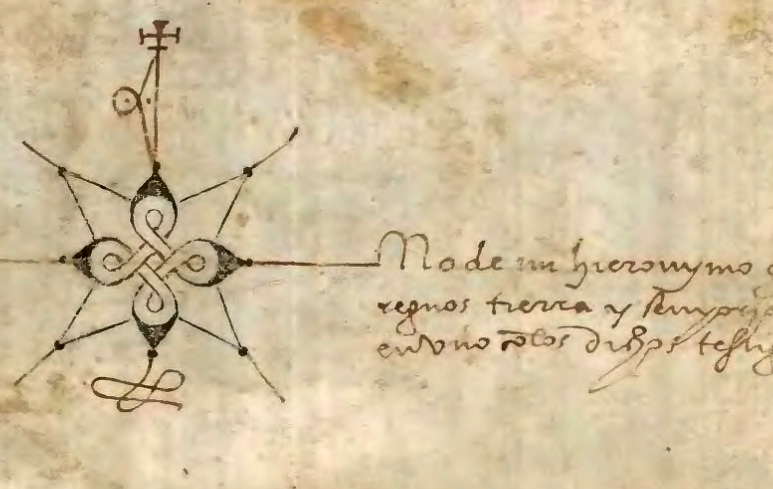 No de mi hieronymo
regnos tierra y
en vno cōlos dichos testig